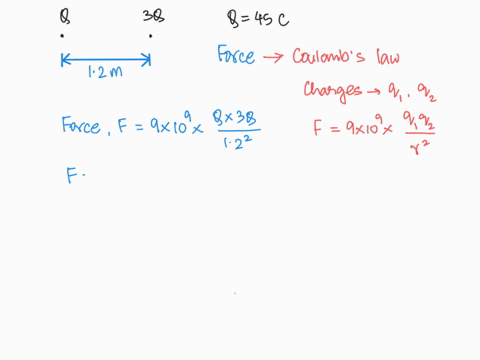 Q 3Q Q = 45 C
1.2 m
Force → Coulomb's law
Charges → q₁, q₂
Force, F = 9×10⁹ × (Q × 3Q)/1.2²
F = 9×10⁹ × q₁q₂/r²
F